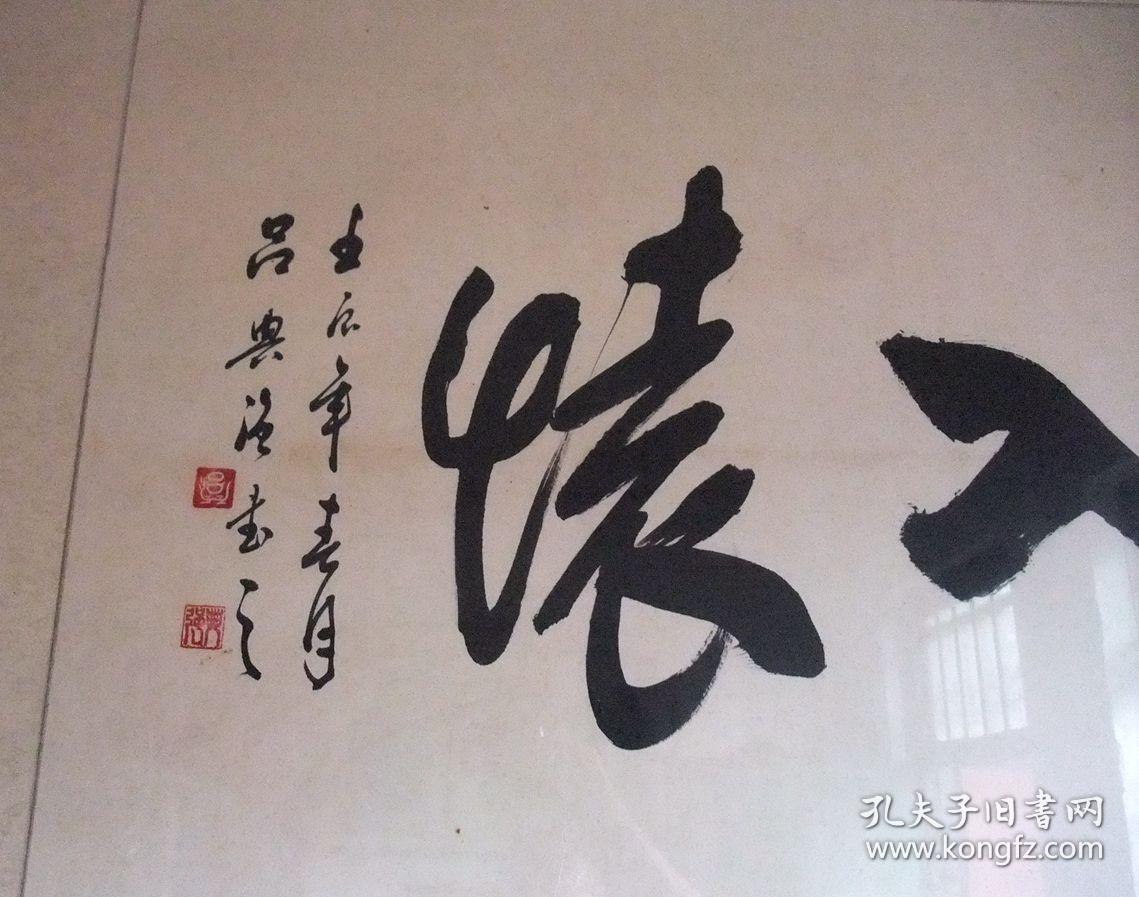 懷
壬辰年春月
吕典强书之
孔夫子旧书网
www.kongfz.com